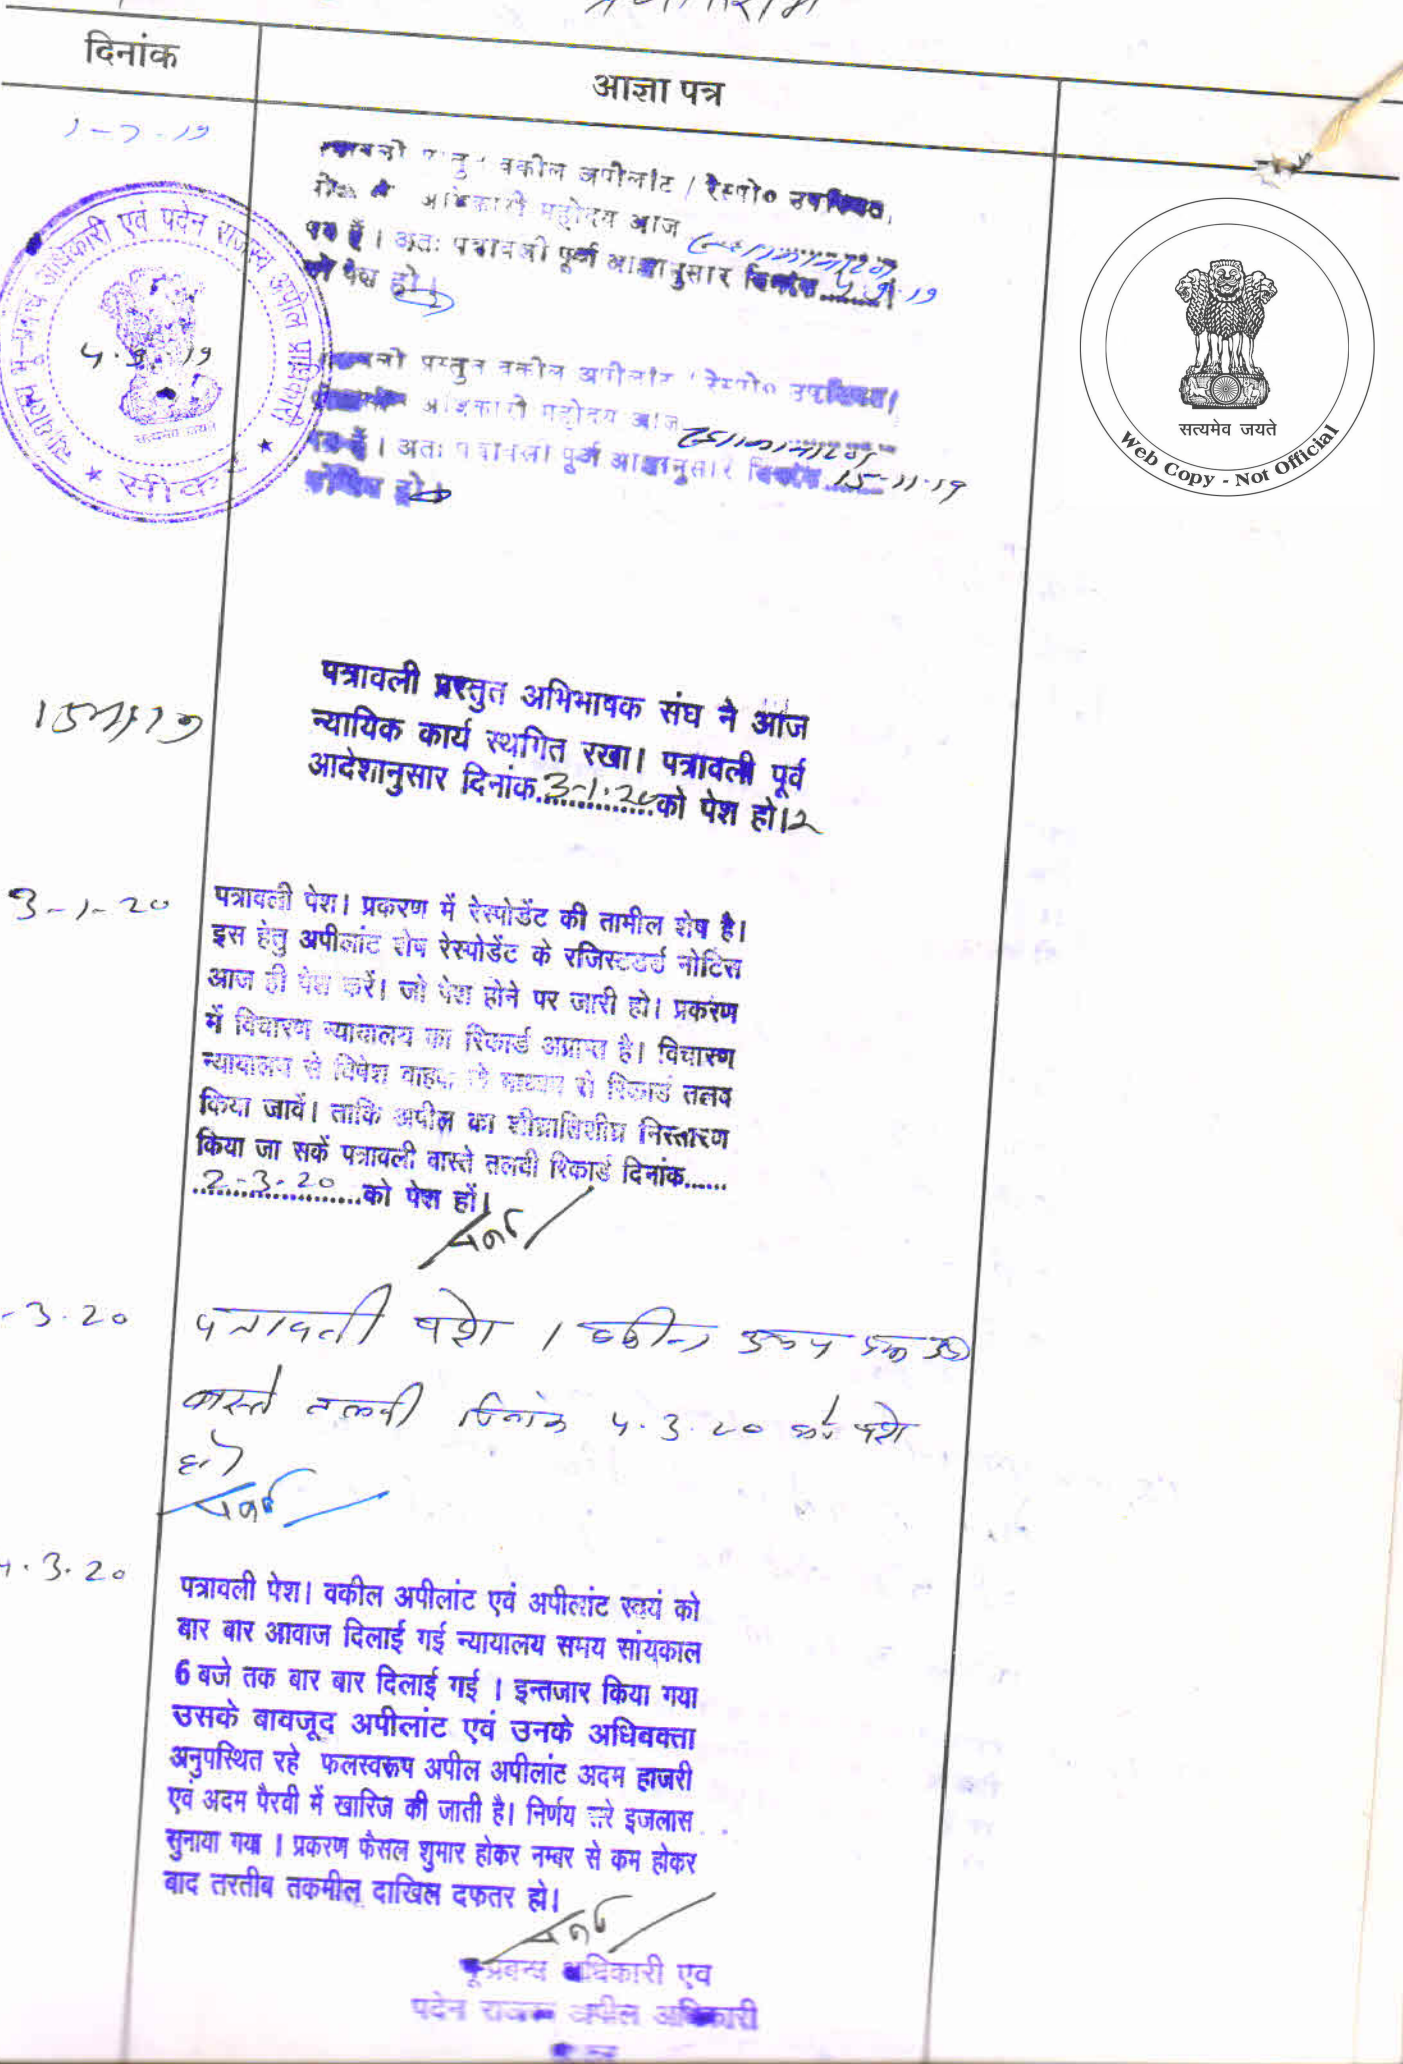 दिनांक
आज्ञा पत्र
1-7-19
वकील अपीलांट / रेस्पो० उपस्थित,
अधिकारी महोदय आज
है। अतः पत्रावली पूर्व आज्ञानुसार दिनांक 4.9.19
को पेश हो।
न्यायालय भू-प्रबन्ध अधिकारी एवं पदेन राजस्व अपील प्राधिकारी
सत्यमेव जयते
सीकर
4.9.19
प्रस्तुत वकील अपीलांट / रेस्पो० उपस्थित।
अधिकारी महोदय आज
है। अतः पत्रावली पूर्व आज्ञानुसार दिनांक 15-11-19
हो।
सत्यमेव जयते
Web Copy - Not Official
15/11/19
पत्रावली प्रस्तुत अभिभाषक संघ ने आज
न्यायिक कार्य स्थगित रखा। पत्रावली पूर्व
आदेशानुसार दिनांक 3-1-20 को पेश हो।
3-1-20
पत्रावली पेश। प्रकरण में रेस्पोडेंट की तामील शेष है।
इस हेतु अपीलांट शेष रेस्पोडेंट के रजिस्टडर्ड नोटिस
आज ही पेश करें। जो पेश होने पर जारी हो। प्रकरण
में विचारण न्यायालय का रिकार्ड अप्राप्त है। विचारण
न्यायालय से विषेश वाहक के माध्यम से रिकार्ड तलब
किया जावें। ताकि अपील का शीघ्रातिशीघ्र निस्तारण
किया जा सकें पत्रावली वास्ते तलबी रिकार्ड दिनांक......
2-3-20 को पेश हों।
-3-20
पत्रावली पेश।
वास्ते तलबी दिनांक 4.3.20 को पेश
हो
4.3.20
पत्रावली पेश। वकील अपीलांट एवं अपीलांट स्वयं को
बार बार आवाज दिलाई गई न्यायालय समय सांयकाल
6 बजे तक बार बार दिलाई गई । इन्तजार किया गया
उसके बावजूद अपीलांट एवं उनके अधिवक्ता
अनुपस्थित रहे फलस्वरूप अपील अपीलांट अदम हाजरी
एवं अदम पैरवी में खारिज की जाती है। निर्णय सरे इजलास
सुनाया गया । प्रकरण फैसल शुमार होकर नम्बर से कम होकर
बाद तरतीब तकमील दाखिल दफतर हो।
भू-प्रबन्ध अधिकारी एव
पदेन राजस्व अपील अधिकारी